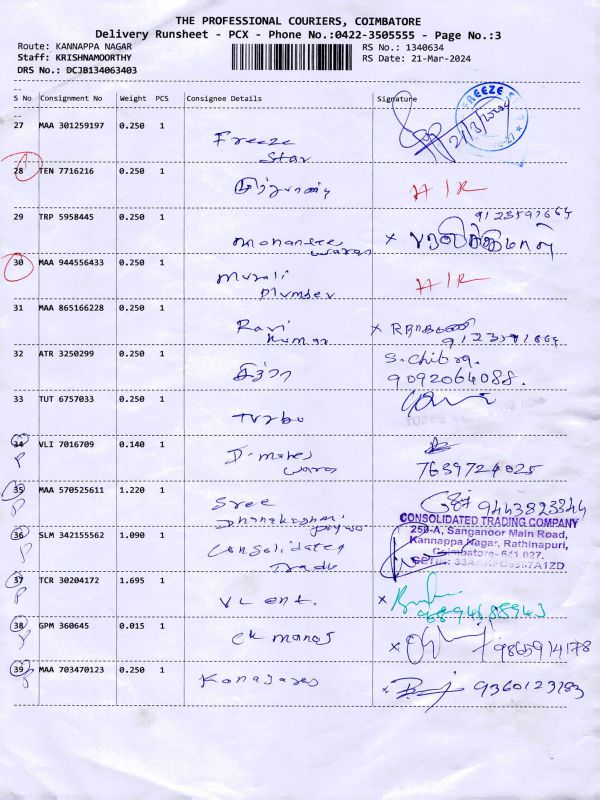 THE PROFESSIONAL COURIERS, COIMBATORE
Delivery Runsheet - PCX - Phone No.:0422-3505555 - Page No.:3
Route: KANNAPPA NAGAR RS No.: 1340634
Staff: KRISHNAMOORTHY RS Date: 21-Mar-2024
DRS No.: DCJB134063403
S No Consignment No Weight PCS Consignee Details Signature
27 MAA 301259197 0.250 1
Freeze
Star
FREEZE
21/3/2024
28 TEN 7716216 0.250 1
H/R
29 TRP 5958445 0.250 1
30 MAA 944556433 0.250 1
Murali
Plumber
H/R
31 MAA 865166228 0.250 1
Ravi
Kumar
32 ATR 3250299 0.250 1
சித்ரா
S. Chitra.
9092064088.
33 TUT 6757033 0.250 1
Turbo
34 VLI 7016709 0.140 1
P
7639724025
35 MAA 570525611 1.220 1
P
Sree
9443823344
36 SLM 342155562 1.090 1
P
Consolidated
Trade
CONSOLIDATED TRADING COMPANY
250-A, Sanganoor Main Road,
Kannappa Nagar, Rathinapuri,
Coimbatore- 641 027.
37 TCR 30204172 1.695 1
P
VL ent.
38 GPM 360645 0.015 1
P
CK Manoj
9865914178
39 MAA 703470123 0.250 1
P
Kanagaraj
9360123183